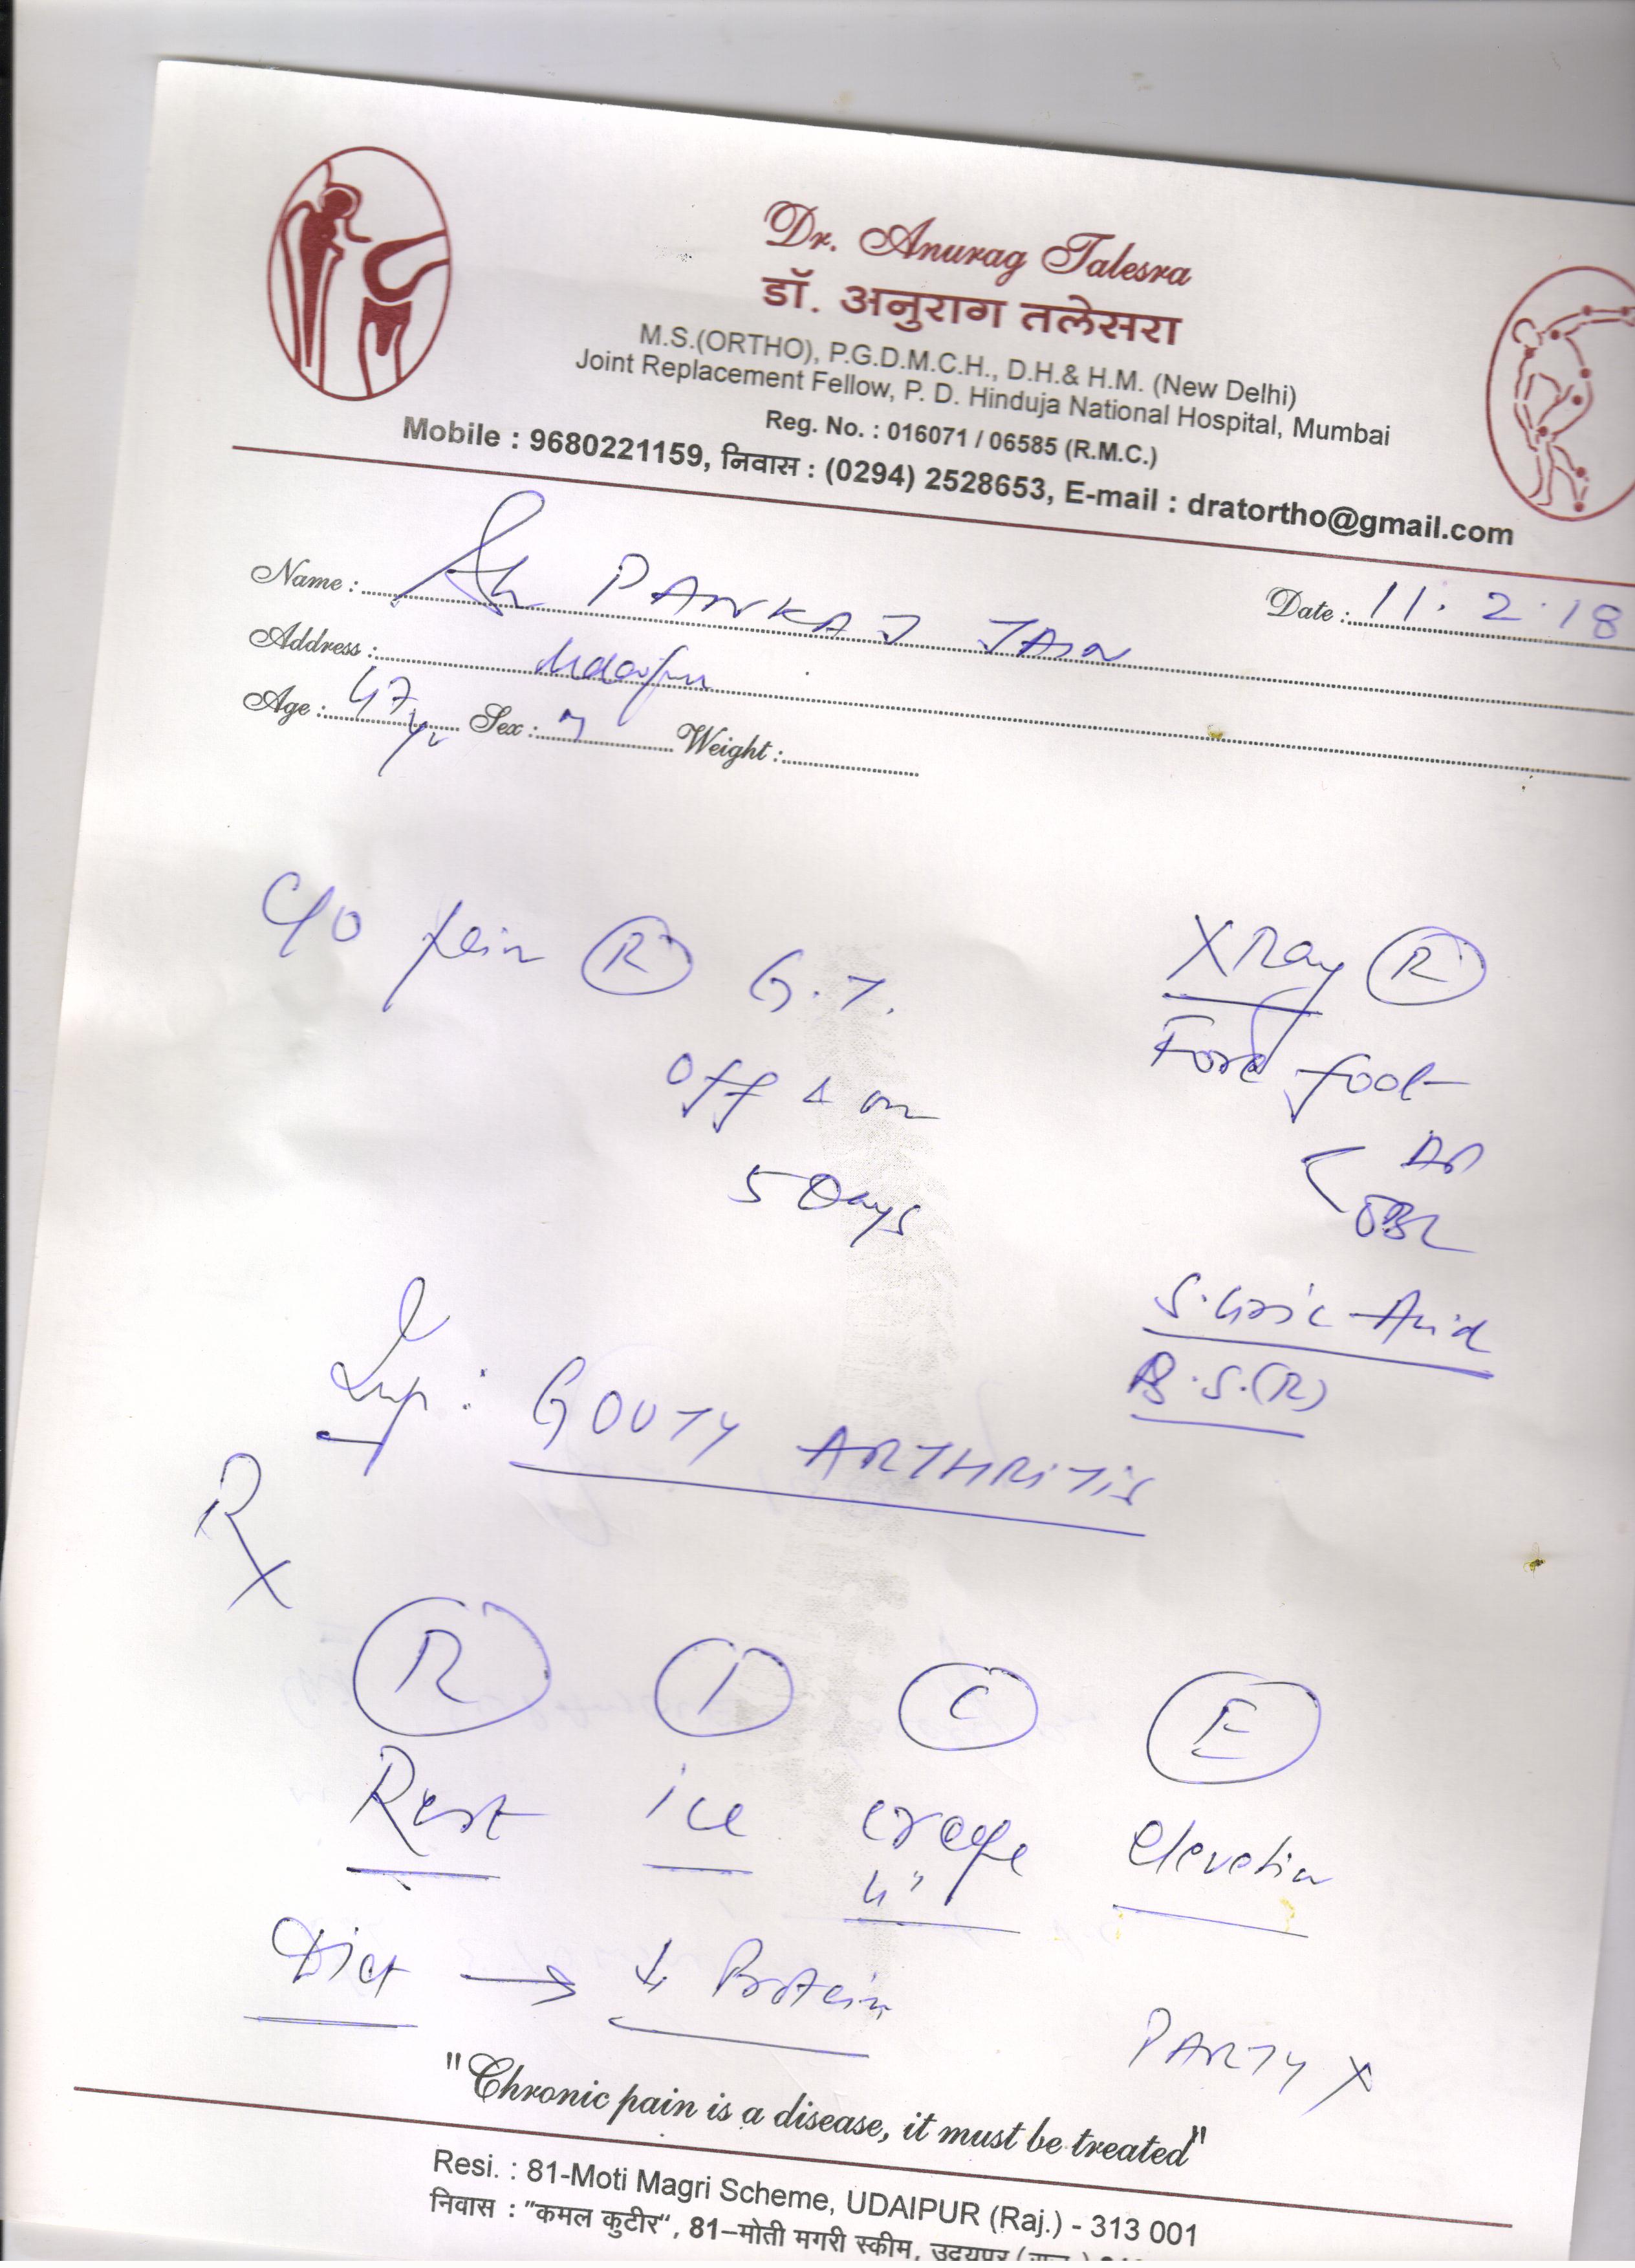 Dr. Anurag Talesra
डॉ. अनुराग तलेसरा
M.S.(ORTHO), P.G.D.M.C.H., D.H.& H.M. (New Delhi)
Joint Replacement Fellow, P. D. Hinduja National Hospital, Mumbai
Reg. No. : 016071 / 06585 (R.M.C.)
Mobile : 9680221159, निवास : (0294) 2528653, E-mail : dratortho@gmail.com
Name : Sh PANKAJ JAIN Date : 11.2.18
Address : Udaipur
Age : 47 yr Sex : M Weight :
C/O pain (R) G.T.
off & on
5 Days
X Ray (R)
Fore foot
< AP
OBL
S. Uric Acid
B.S.(R)
Imp : GOUTY ARTHRITIS
Rx
R I C E
Rest ice crepe elevation
4"
Diet → ↓ Protein
PARTY X
"Chronic pain is a disease, it must be treated"
Resi. : 81-Moti Magri Scheme, UDAIPUR (Raj.) - 313 001
निवास : "कमल कुटीर", 81–मोती मगरी स्कीम, उदयपुर